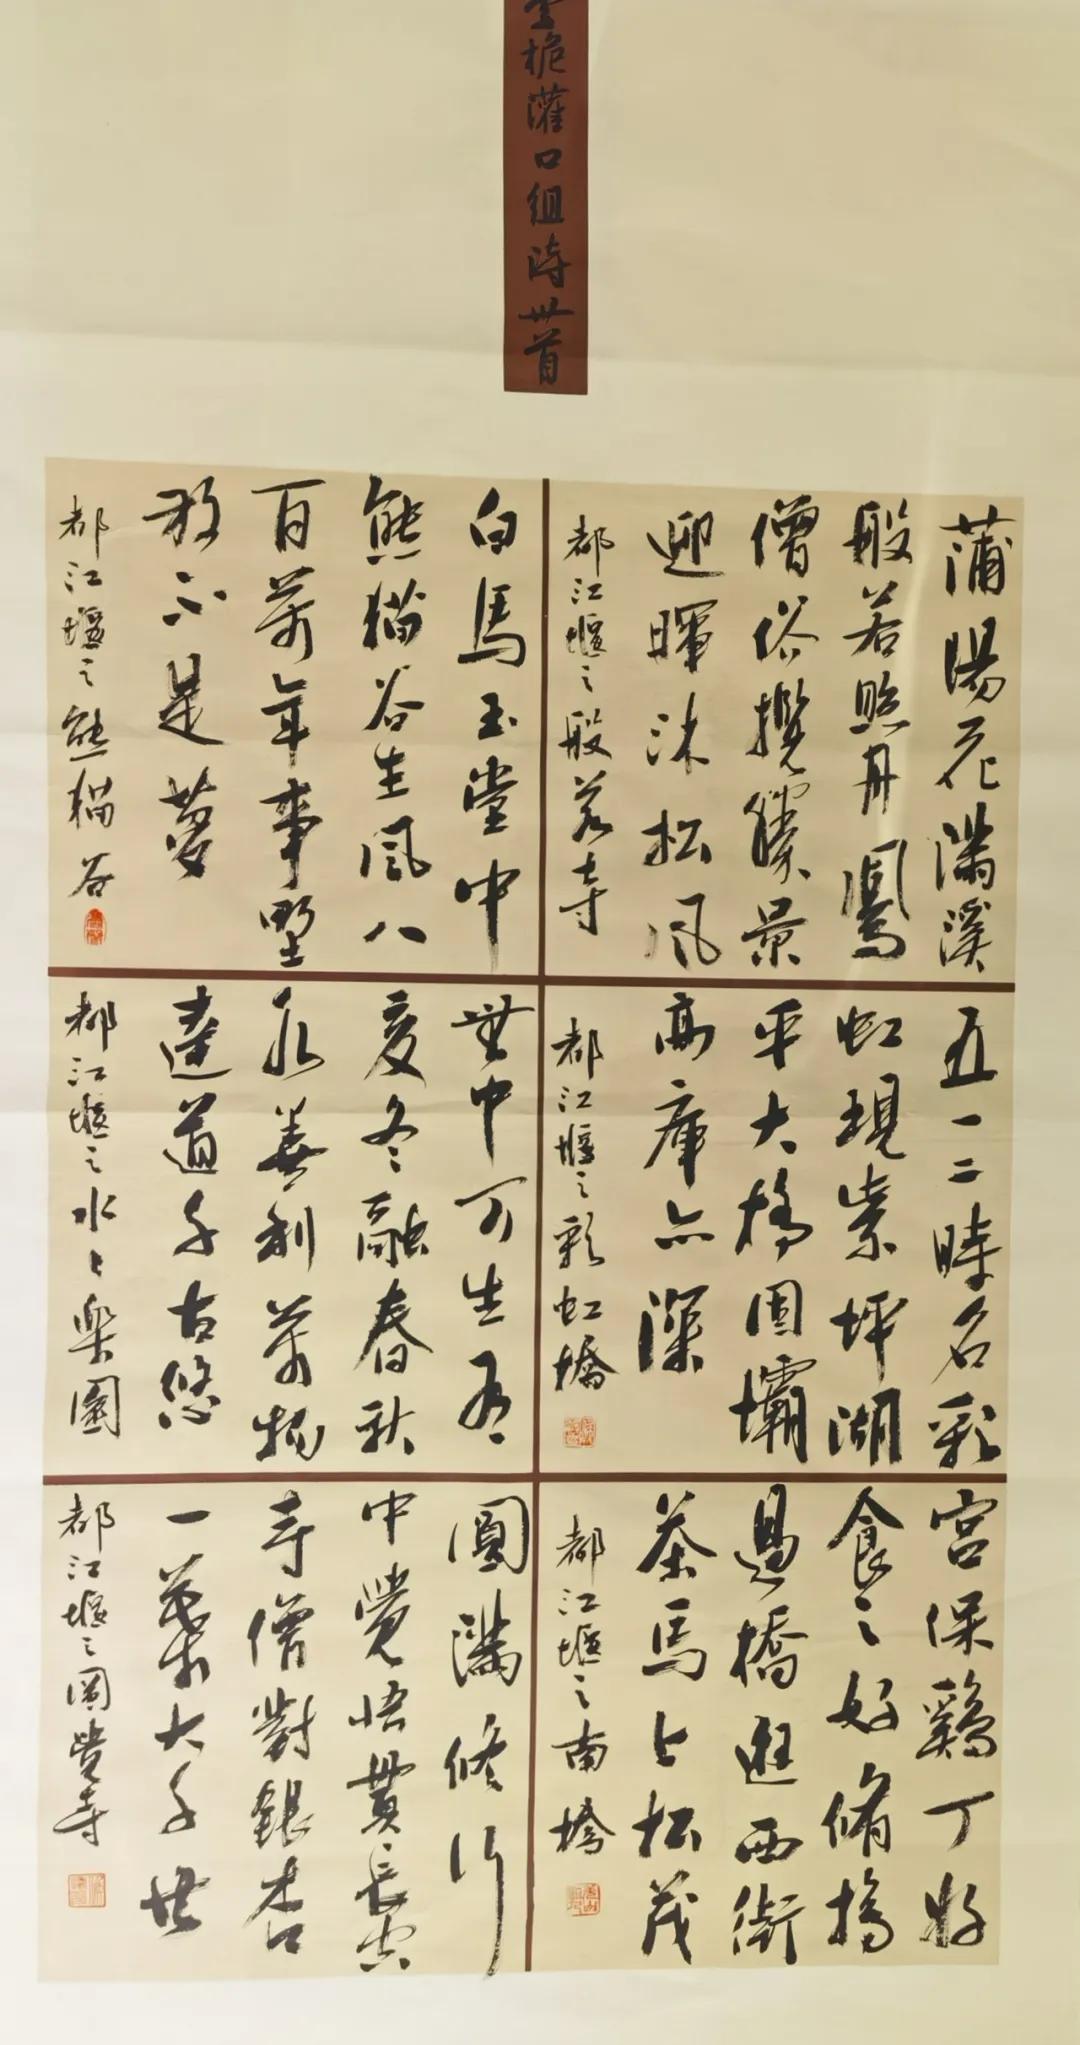 桅灌口组诗卅首
蒲陽花滿溪
般若照丹鳳
僧俗攬勝景
迎暉沐松风
都江堰之般若寺
白馬玉堂中
熊猫谷生風八
百萬年事堅
敢不是夢
都江堰之熊猫谷
五一二時名彩
虹現紫坪湖
平大橋固壩
高庫亦深
都江堰之彩虹橋
無中可生有
夏冬融春秋
水善利萬物
達道千古悠
都江堰之水水樂園
宫保鷄丁好
食之好脩橋
過橋逛西街
茶馬上松茂
都江堰之南橋
圓滿修行
中覺悟貫長空
寺僧對銀杏
一葉大千世
都江堰之圓覺寺